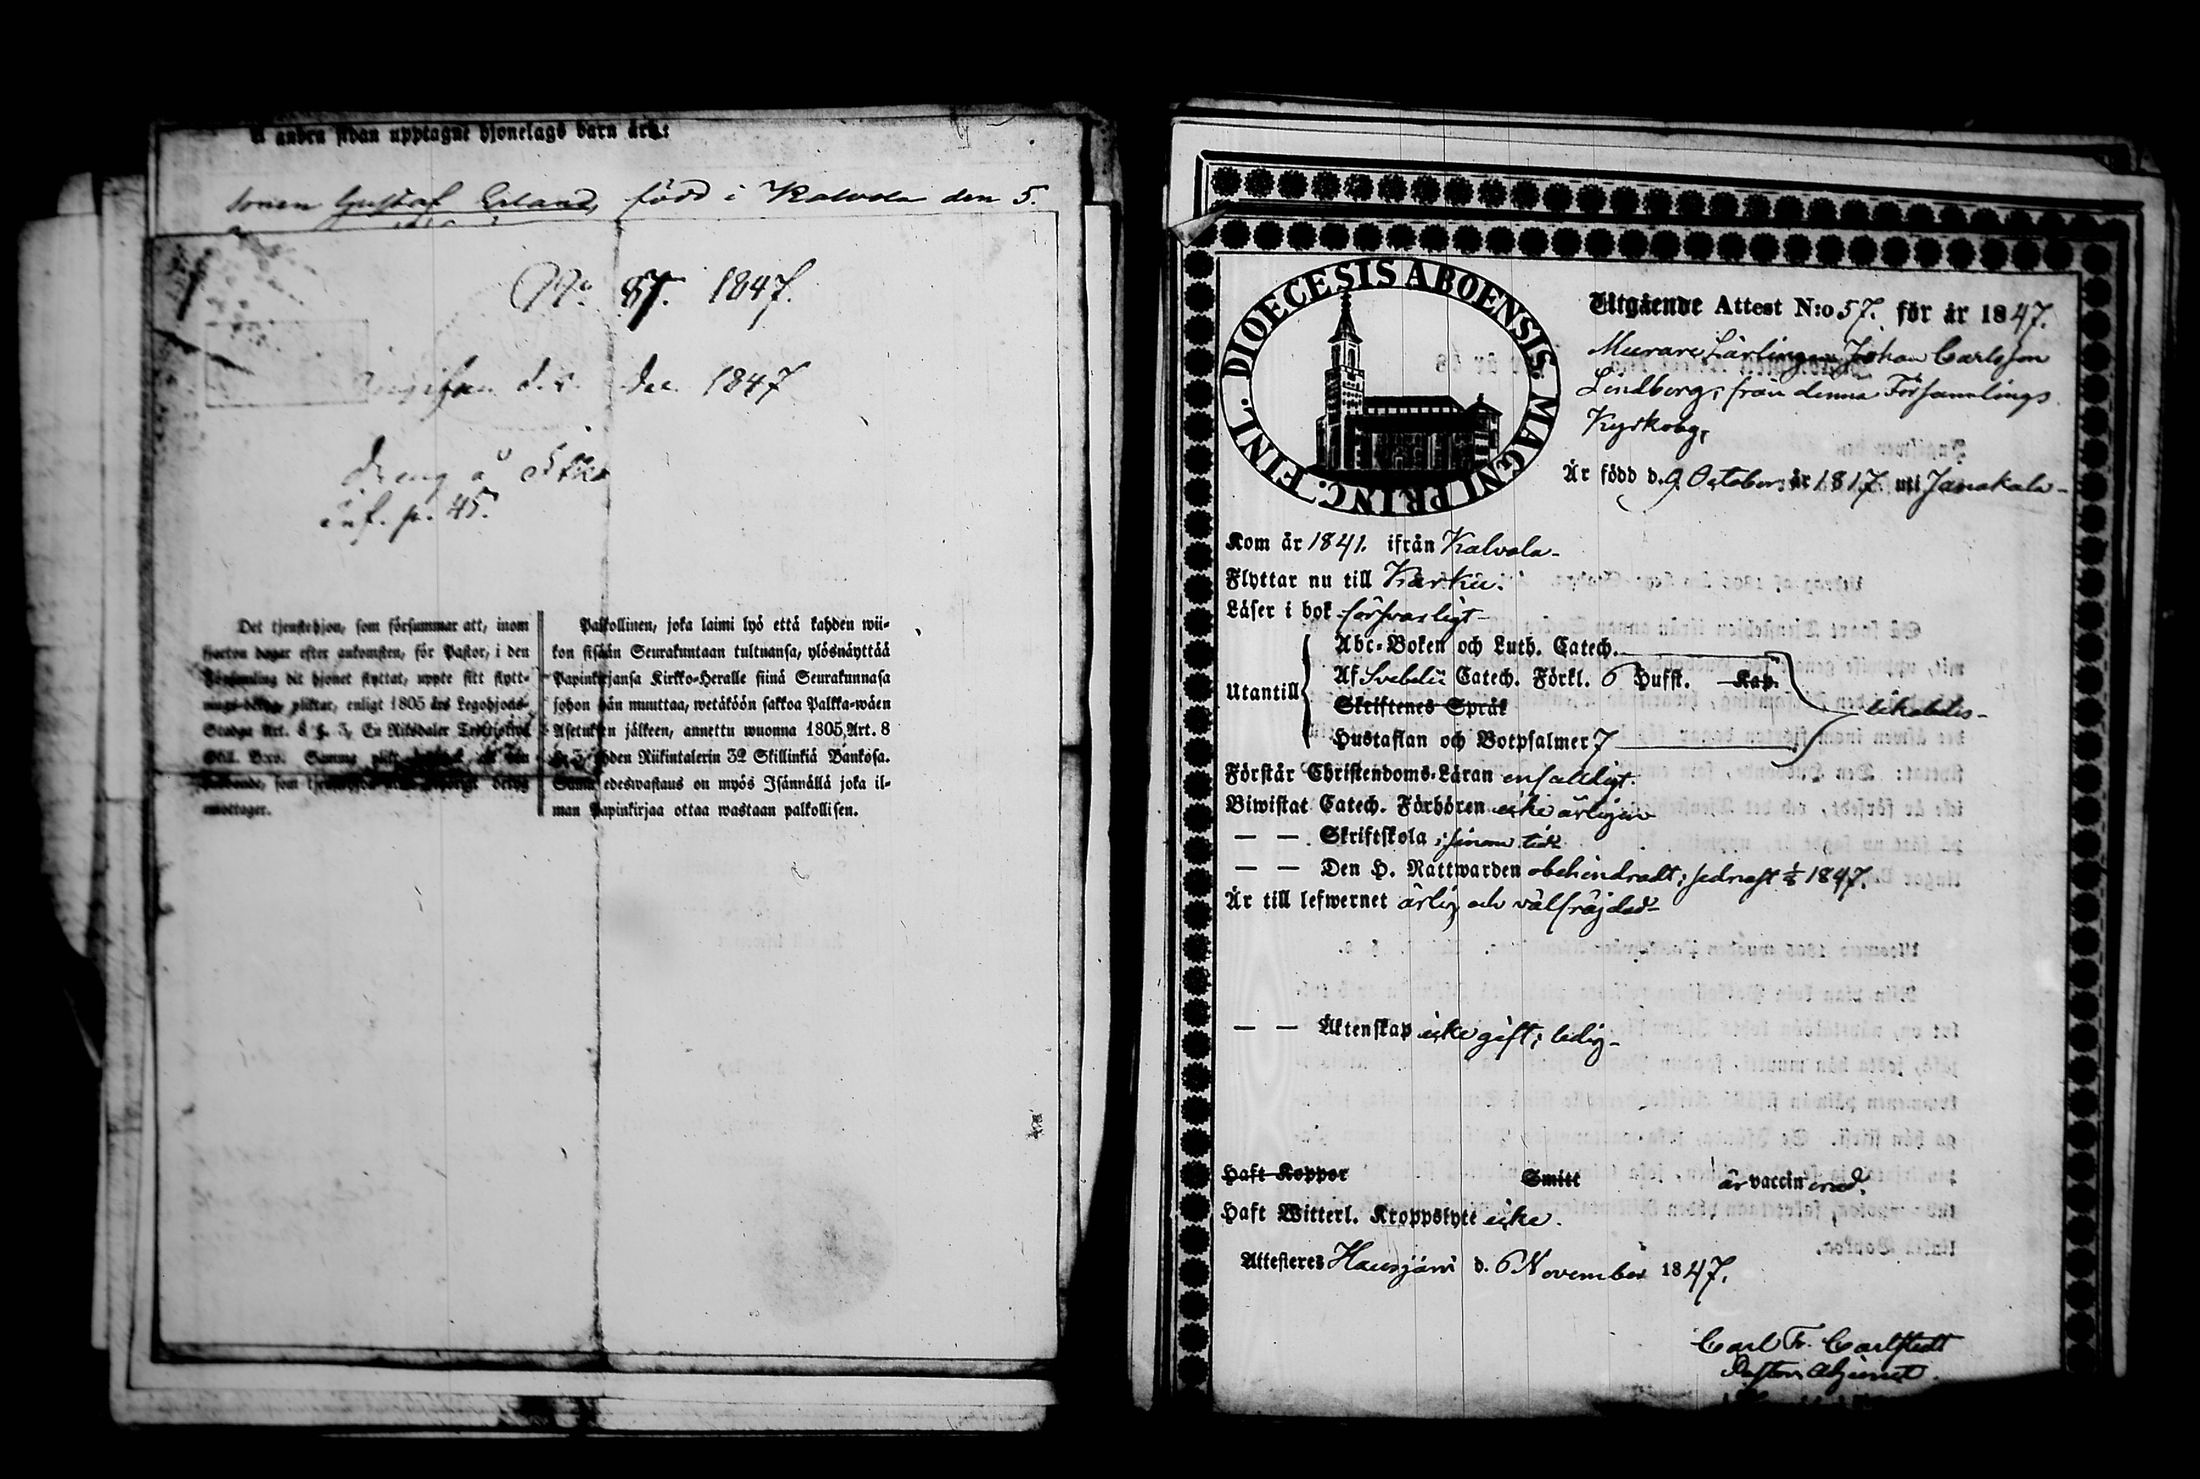 å andra sidan upptagne hjonelags barn äro:
sonen Gustaf Erland, född i Kalvola den 5.
No 87. 1847.
d. 5. Dec. 1847
Dreng å
inf. p. 45.
Det tjenstehjon, som försummar att, inom
fjorton dagar efter ankomsten, för Pastor, i den
Församling dit hjonet flyttat, uppte sitt flytt-
nings-betyg, pliktar, enligt 1805 års Legohjons-
Stadga Art. 8 §. 3, En Riksdaler Trettiotvå
Skill. B:co. Samma plikt
husbonde, som tjenstehjon utan betyg
mottager.
Palkollinen, joka laimi lyö että kahden wii-
kon sisään Seurakuntaan tultuansa, ylösnäyttää
Papinkirjansa Kirkko-Heralle siinä Seurakunnasa
johon hän muuttaa, wetäköön sakkoa Palkka-wäen
Asetuksen jälkeen, annettu wuonna 1805, Art. 8
§. 3 yhden Riikintalerin 32 Skillinkiä Bankosa.
Samaedeswastaus on myös Isännällä joka il-
man Papinkirjaa ottaa wastaan palkollisen.
DIOECESIS ABOENSIS. MAGNI PRINC. FINL.
Utgående Attest N:o 57. för år 1847.
Murare Lärlingen Johan Carlsson
Lindberg, från denna Församlings
Kyrkoby,
Är född d. 9 October år 1817. uti Janakala-
Kom år 1841. ifrån Kalvola-
Flyttar nu till Karku.
Läser i bok försvarligt-
Utantill
Abc-Boken och Luth. Catech.
Af Svebelii Catech. Förkl. 6 Hufst. Kap.
Skriftenes Språk
likaledes-
Hustaflan och Botpsalmer 7
Förstår Christendoms-Läran enfaldigt.
Biwistat Catech. Förhören icke årligen
— — Skriftskola i sinom tid
— — Den H. Nattwarden obehindradt; sednast 1847.
Är till lefwernet ärlig och välfräjdad-
— — Äktenskap icke gift; ledig-
Haft Koppor Smitt är vaccinerad.
Haft Witterl. Kroppslyte icke.
Attesteres Hausjärvi d. 6 November 1847.
Carl Fr. Carlstedt
Pastors Adjunct.